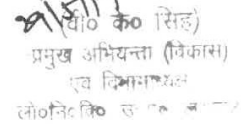 (वी० के० सिंह)
प्रमुख अभियन्ता (विकास)
एवं विभागाध्यक्ष
लो०नि०वि०